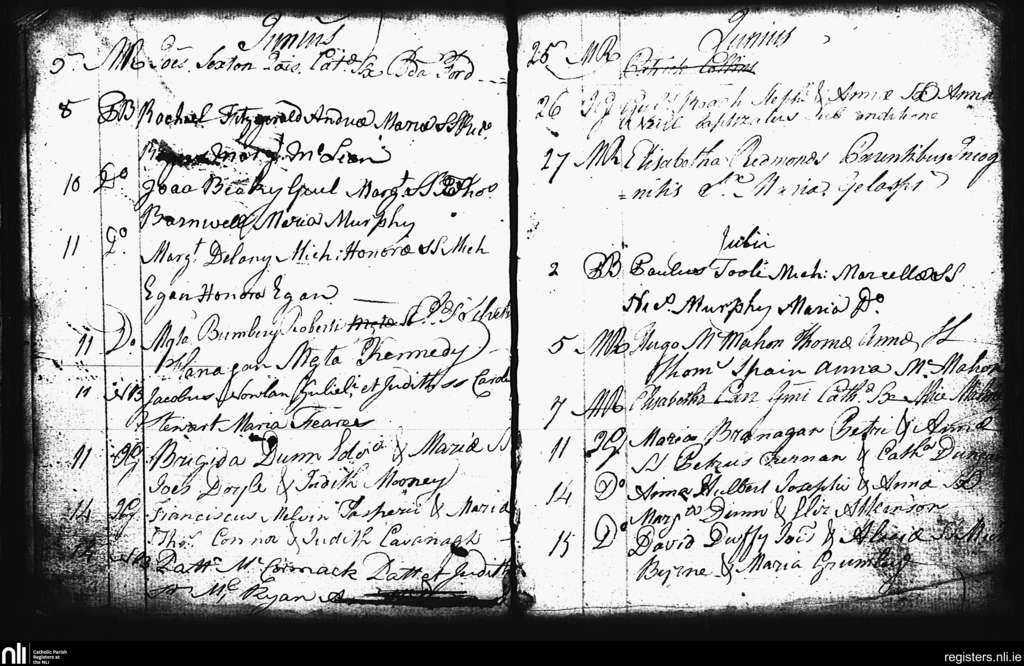 Junius
5 MR Joēs Sexton Jaēs Cath Sx Bda Ford
8 BB Rachael Fitzgerald Andræ Mariæ SS
Margt McLean
10 Do Joaa Beaky Gaul Margte SS Thos
Barnwell Maria Murphy
11 Do Margt Delany Mich: Honoræ SS Mich
Egan Honora Egan
11 Do Mgta Bumbery Roberti
Phlanagan Mgta Khennedy
11 NB Jacobus Nowlan Gulieli et Judith ss Carol
Stewart Maria Fearee
11 JG Brigida Dunn & Mariæ SS
Joēs Doyle & Judith Mooney
14 JG Franciscus Melvin Jasperii & Maria
Thos Connor & Judith Cavanagh
14 NB Patt. McCormack Patt et Judith
Ryan
Junius
25 MR Patrick Collins
26 JG Roach Steph & Annæ SS Anna
baptizatus sub conditione
27 MR Elisabetha Redmonds Parentibus Incog
=nitis Sx Maria Gelaspi
Julii
2 BB Paulus Tooli Mich: Marcellæ SS
Nics Murphy Maria Do
5 MR Hugo McMahon Thomæ Annæ SS
Thom Spain Anna McMahon
7 MR Elisabetha Carr Cath Sx Alice
11 JG Maria Branagan Petri & Annæ
SS Petrus Kernan & Catha
14 Do Anna Hulbert Josephi & Anna SS
Dunn & Eliz Atkinson
15 Do David Duffy Jois & Alicia SS
Byrne & Maria Grumley
nli
Catholic Parish
Registers at
the NLI
registers.nli.ie